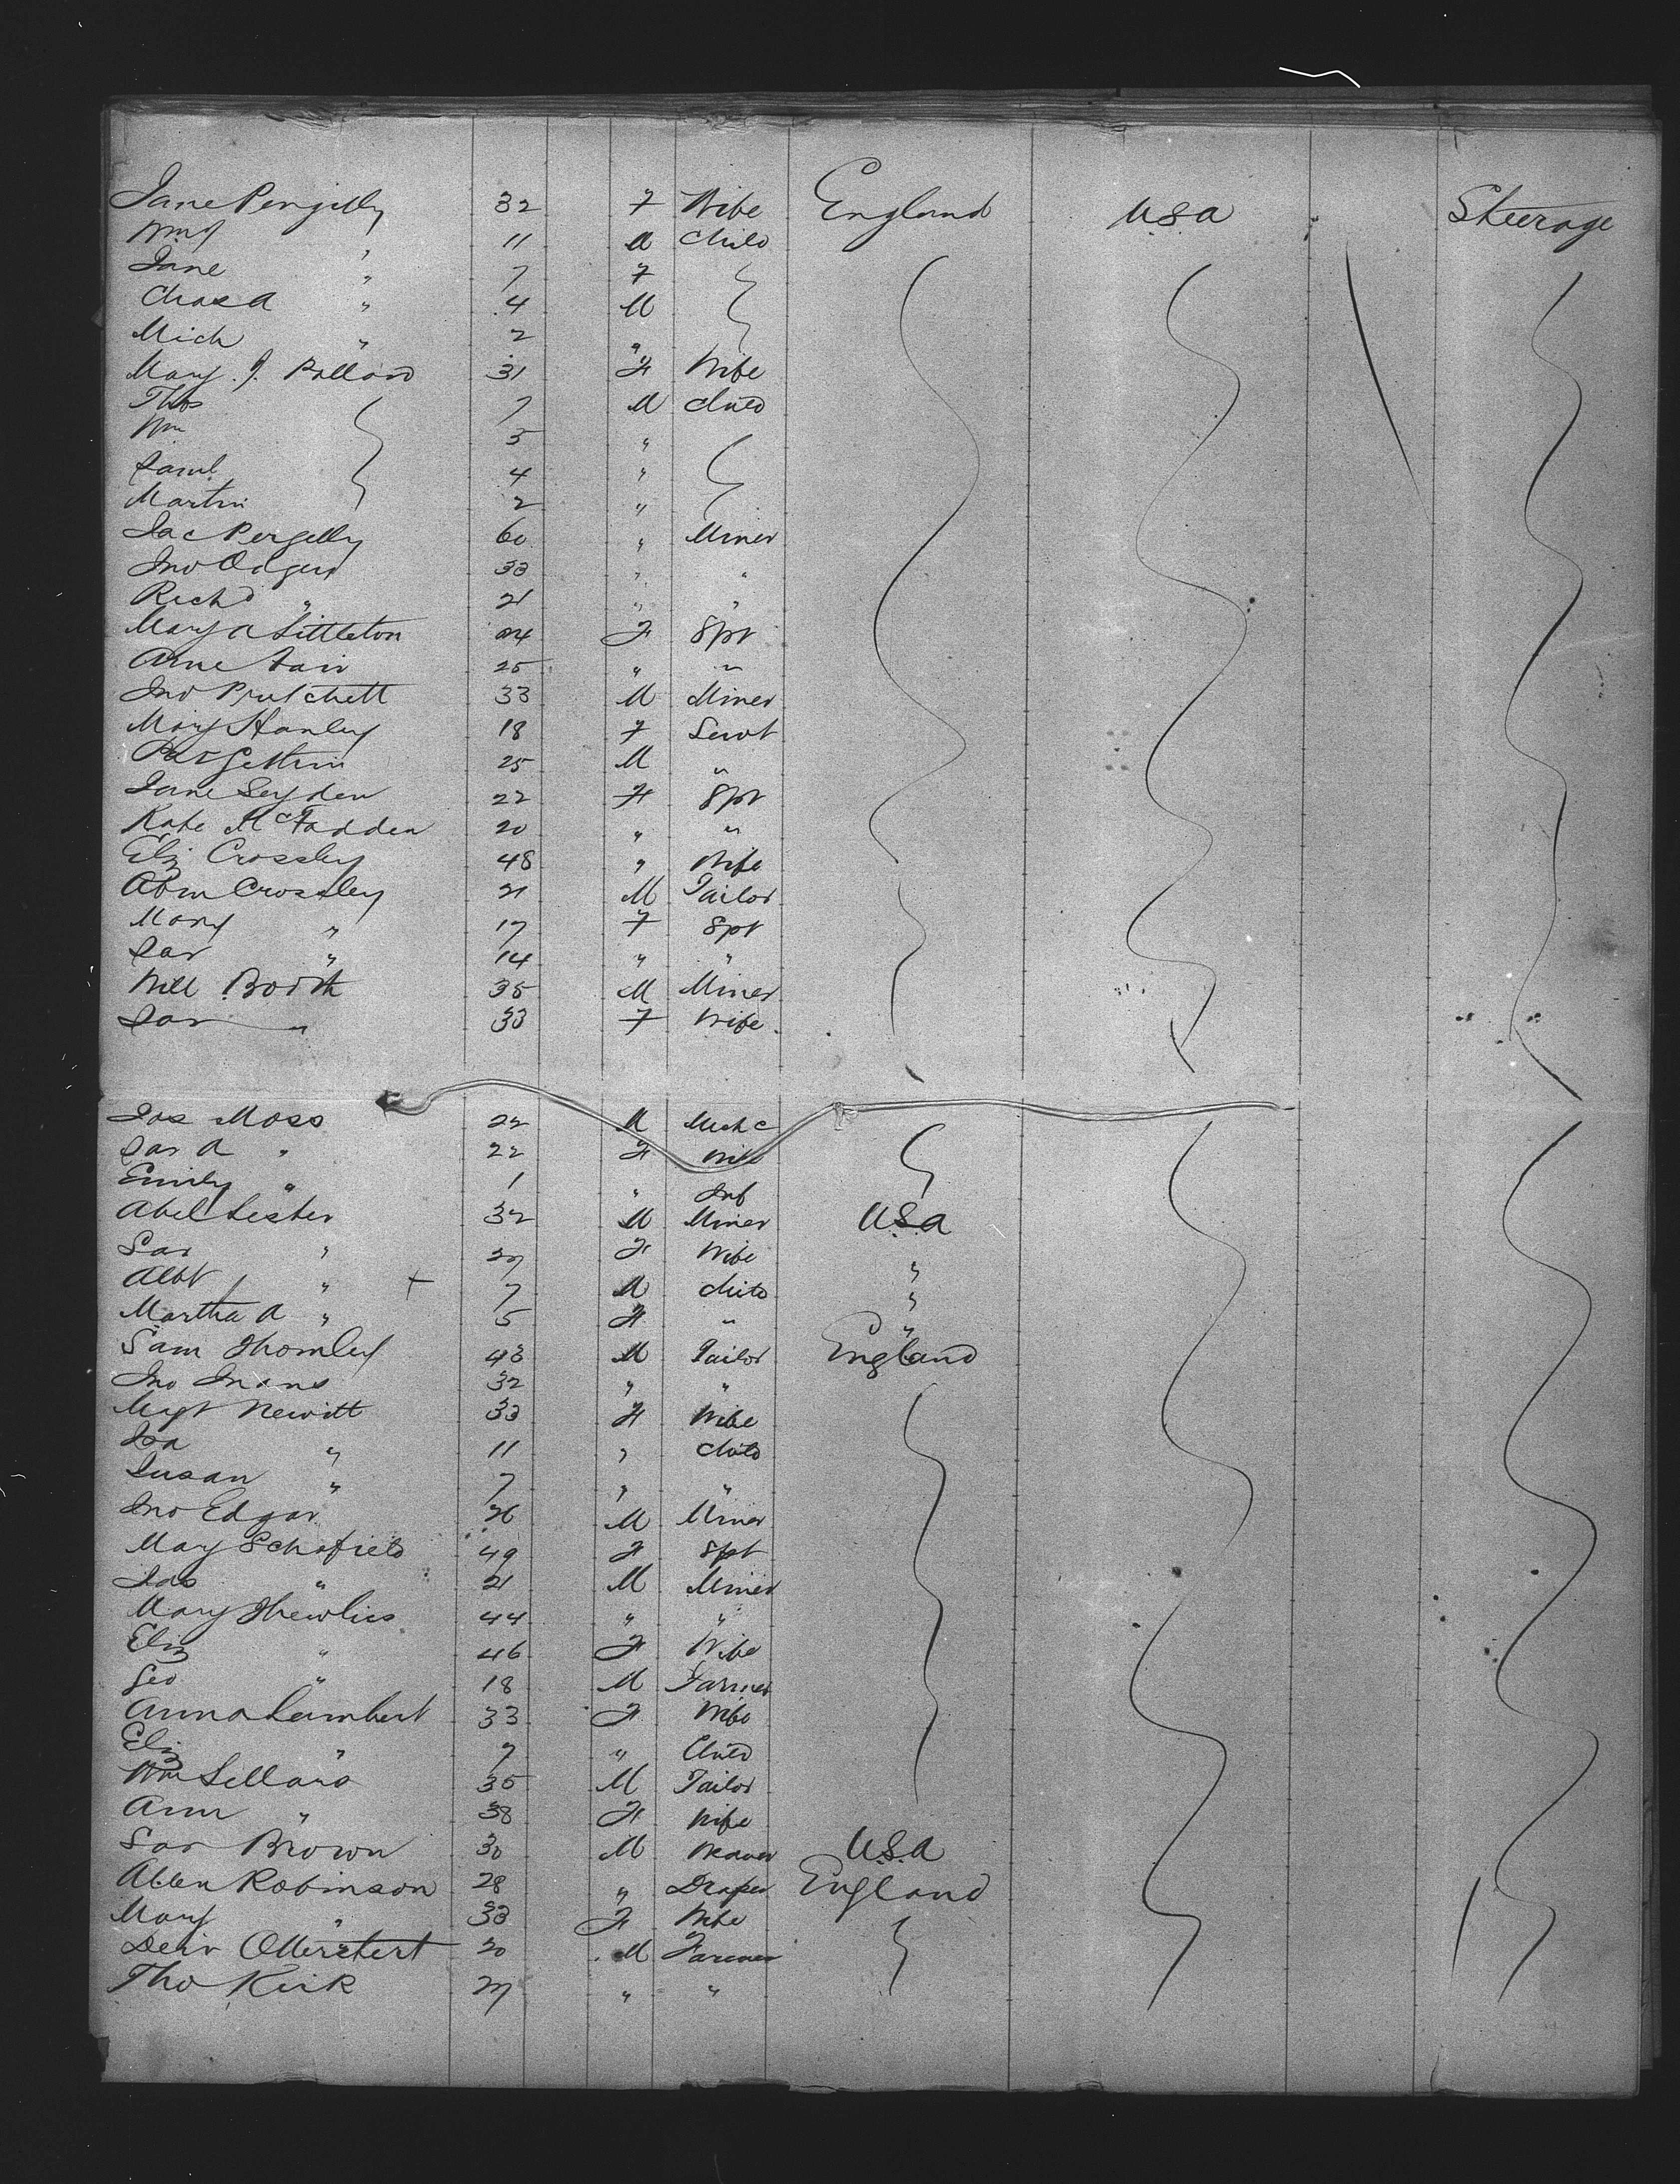 Jane Pengilly 32 F Wife England U.S.A Steerage
Wm J " 11 M Child
Jane " 7 F
Chas A " 4 M
Mich " 2 "
Mary J. Pollard 31 F Wife
Thos 7 M Child
Wm 5 "
Saml 4 "
Martin 2 "
Jac Pengelly 60 " Miner
Jno Odgers 33 " "
Richd " 21 " "
Mary A Littleton 24 F Spr
Anne Fair 25 " "
Jno Prutchett 33 M Miner
Mary Hanley 18 F Servt
Pat 25 M "
Jane Seyden 22 F Spr
Kate McFadden 20 " "
Eliz Crossley 48 " Wife
Abm Crossley 21 M Tailor
Mary " 17 F Spr
Sar " 14 " "
Will Booth 35 M Miner
Sar " 33 F Wife
Jos Moss 22 M Mechc
Sar A " 22 F Wife
Emily " 1 " Inf
Abel Lester 32 M Miner U.S.A
Sar " 27 F Wife "
Albt " + 7 M Child "
Martha A " 5 F " "
Sam Thornley 43 M Tailor England
Jno 32 " "
Mgt Newitt 33 F Wife
Isa " 11 " Child
Susan " 7 " "
Jno Edgar 26 M Miner
May Schofield 49 F Spr
Jas " 21 M Miner
Mary Thewlies 44 " "
Eliz " 46 F Wife
Geo " 18 M Farmer
Anna Lambert 33 F Wife
Eliz " 7 " Child
Wm Sellars 35 M Tailor
Ann " 38 F Wife
Sar Brown 30 M Weaver U.S.A
Allen Robinson 28 " Draper England
Mary " 33 F Wife
20 M Farmer
Tho Kirk 27 " "